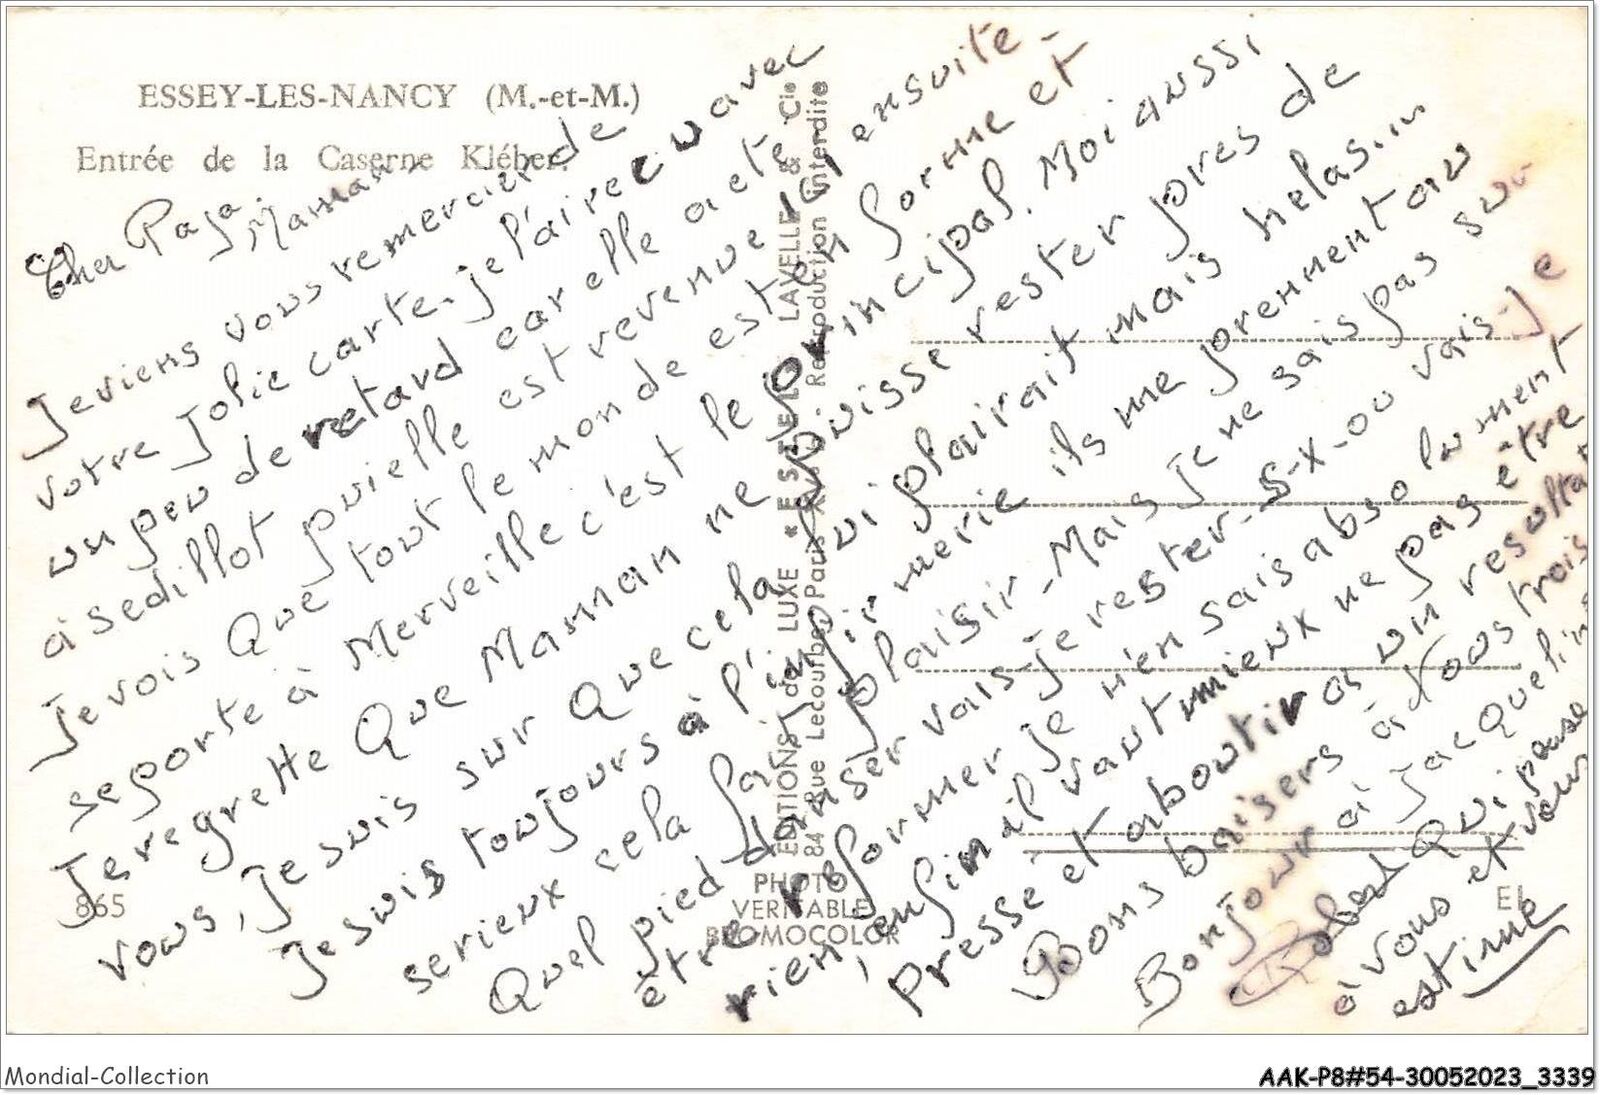 ESSEY-LES-NANCY (M.-et-M.)
Entrée de la Caserne Kléber.
Cher Papa. Maman.
Je viens vous remercier de
votre Jolie carte. je l'ai recu avec
un peu de retard car elle a ete
a sedillot puielle est revenue ici ensuite -
Je vois Que tout le monde est en forme et
se porte à Merveille c'est le principal. Moi aussi
Je regrette Que Maman ne puisse rester pres de
vous, Je suis sur Que cela lui plairait mais helas. in
Je suis toujours à l'infirmerie ils me prennent au
serieux sela fait plaisir - Mais Je ne sais pas sur
Quel pied danser vais-Je rester - S-X - ou vais-Je
être reformer Je n'en sais absolument
rien, enfin il vaut mieux ne pas être
Pressé et abouttir as un resultat
Bons baisers à tous trois
Bonjour à Jacqueline
Robert Qui pense
à vous et vous
estime
EDITIONS de LUXE * ESTEL * LAVELLE & Cie
84, Rue Lecourbe, Paris XV Reproduction interdite
PHOTO
VERITABLE
BROMOCOLOR
865
EL
Mondial-Collection
AAK-P8#54-30052023_3339